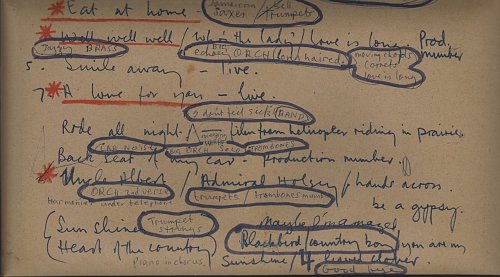 * Eat at home. Jamaican / Cell
Saxes / trumpets
* Well well well / who's the lady / Love is long Prod.
Jazzy BRASS BIG echoey ORCH (long haired) moving chords cornets love is long number
5. Smile away – live.
7 * A love for you – live.
I don't feel sick (BAND)
Ride all night / film from helicopter riding in prairie
CAR NOISES BIG ORCH SOLO TROMBONES
Back Seat of my car – Production number.
* Uncle Albert / Admiral Halsey / hands across.
ORCH 2nd verse trumpets / trombones
Harmonies under telephone be a gypsy
(Sunshine Trumpet strings Maybe I'm amazed
(Heart of the country) Blackbird / country boy / you are my
Piano in chorus sunshine / 4 leaf clover.
Good bye